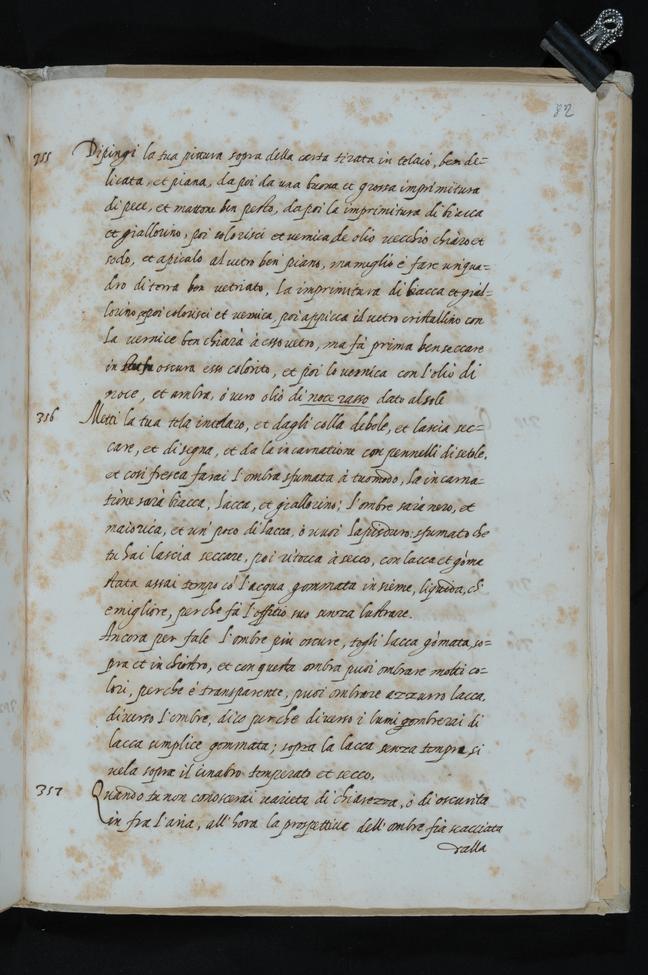 82
355 Dipingi la tua pittura sopra della carta tirata in telaio, ben de=
licata, et piana, da poi da una buona et grossa imprimitura
di pece, et mattone ben pesto, da poi la imprimitura di biacca
et giallorino, poi colorisci et vernica de olio vecchio chiaro et
sodo, et apicalo al vetro ben piano, ma meglio è fare un qua=
dro di terra ben vetriato, la imprimitura di biacca et gial=
lorino, et poi colorisci et vernica, poi appicca il vetro cristallino con
la vernice ben chiara à esso vetro, ma fà prima ben seccare
in stufa oscura esso colorito, et poi lo vernica con l'olio di
noce, et ambra, ò vero olio di noce rasso dato al sole
356 Metti la tua tela in telaro, et dagli colla debole, et lascia sec=
care, et disegna, et da la incarnatione con pennelli di setole,
et cosi fresca farai l'ombra sfumata à tuo modo, la incarna=
tione sarà biacca, lacca, et giallorino; l'ombre sarà nero, et
maiorica, et un' poco di lacca, ò vuoi lapis duro: sfumato che
tu hai lascia seccare, poi ritocca à secco, con lacca et gòma
stata assai tempo cò l'acqua gommata insieme, liquida, ch
e migliore, perche fà l'offitio suo senza lustrare.
Ancora per fale l'ombre piu oscure, togli lacca gòmata, so=
pra et inchiostro, et con questa ombra puoi ombrare molti co=
lori, perche è transparente, puoi ombrare azzurro lacca,
diverso l'ombre, dico perche diverso i lumi gombrerai di
lacca simplice gommata; sopra la lacca senza tempra, si
vela sopra il cinabro temperato et secco.
357 Quando tu non conoscerai varieta di chiarezza, ò di oscurita
in fra l'aria, all'hora la prospettiva dell'ombre fia scacciata
dalla